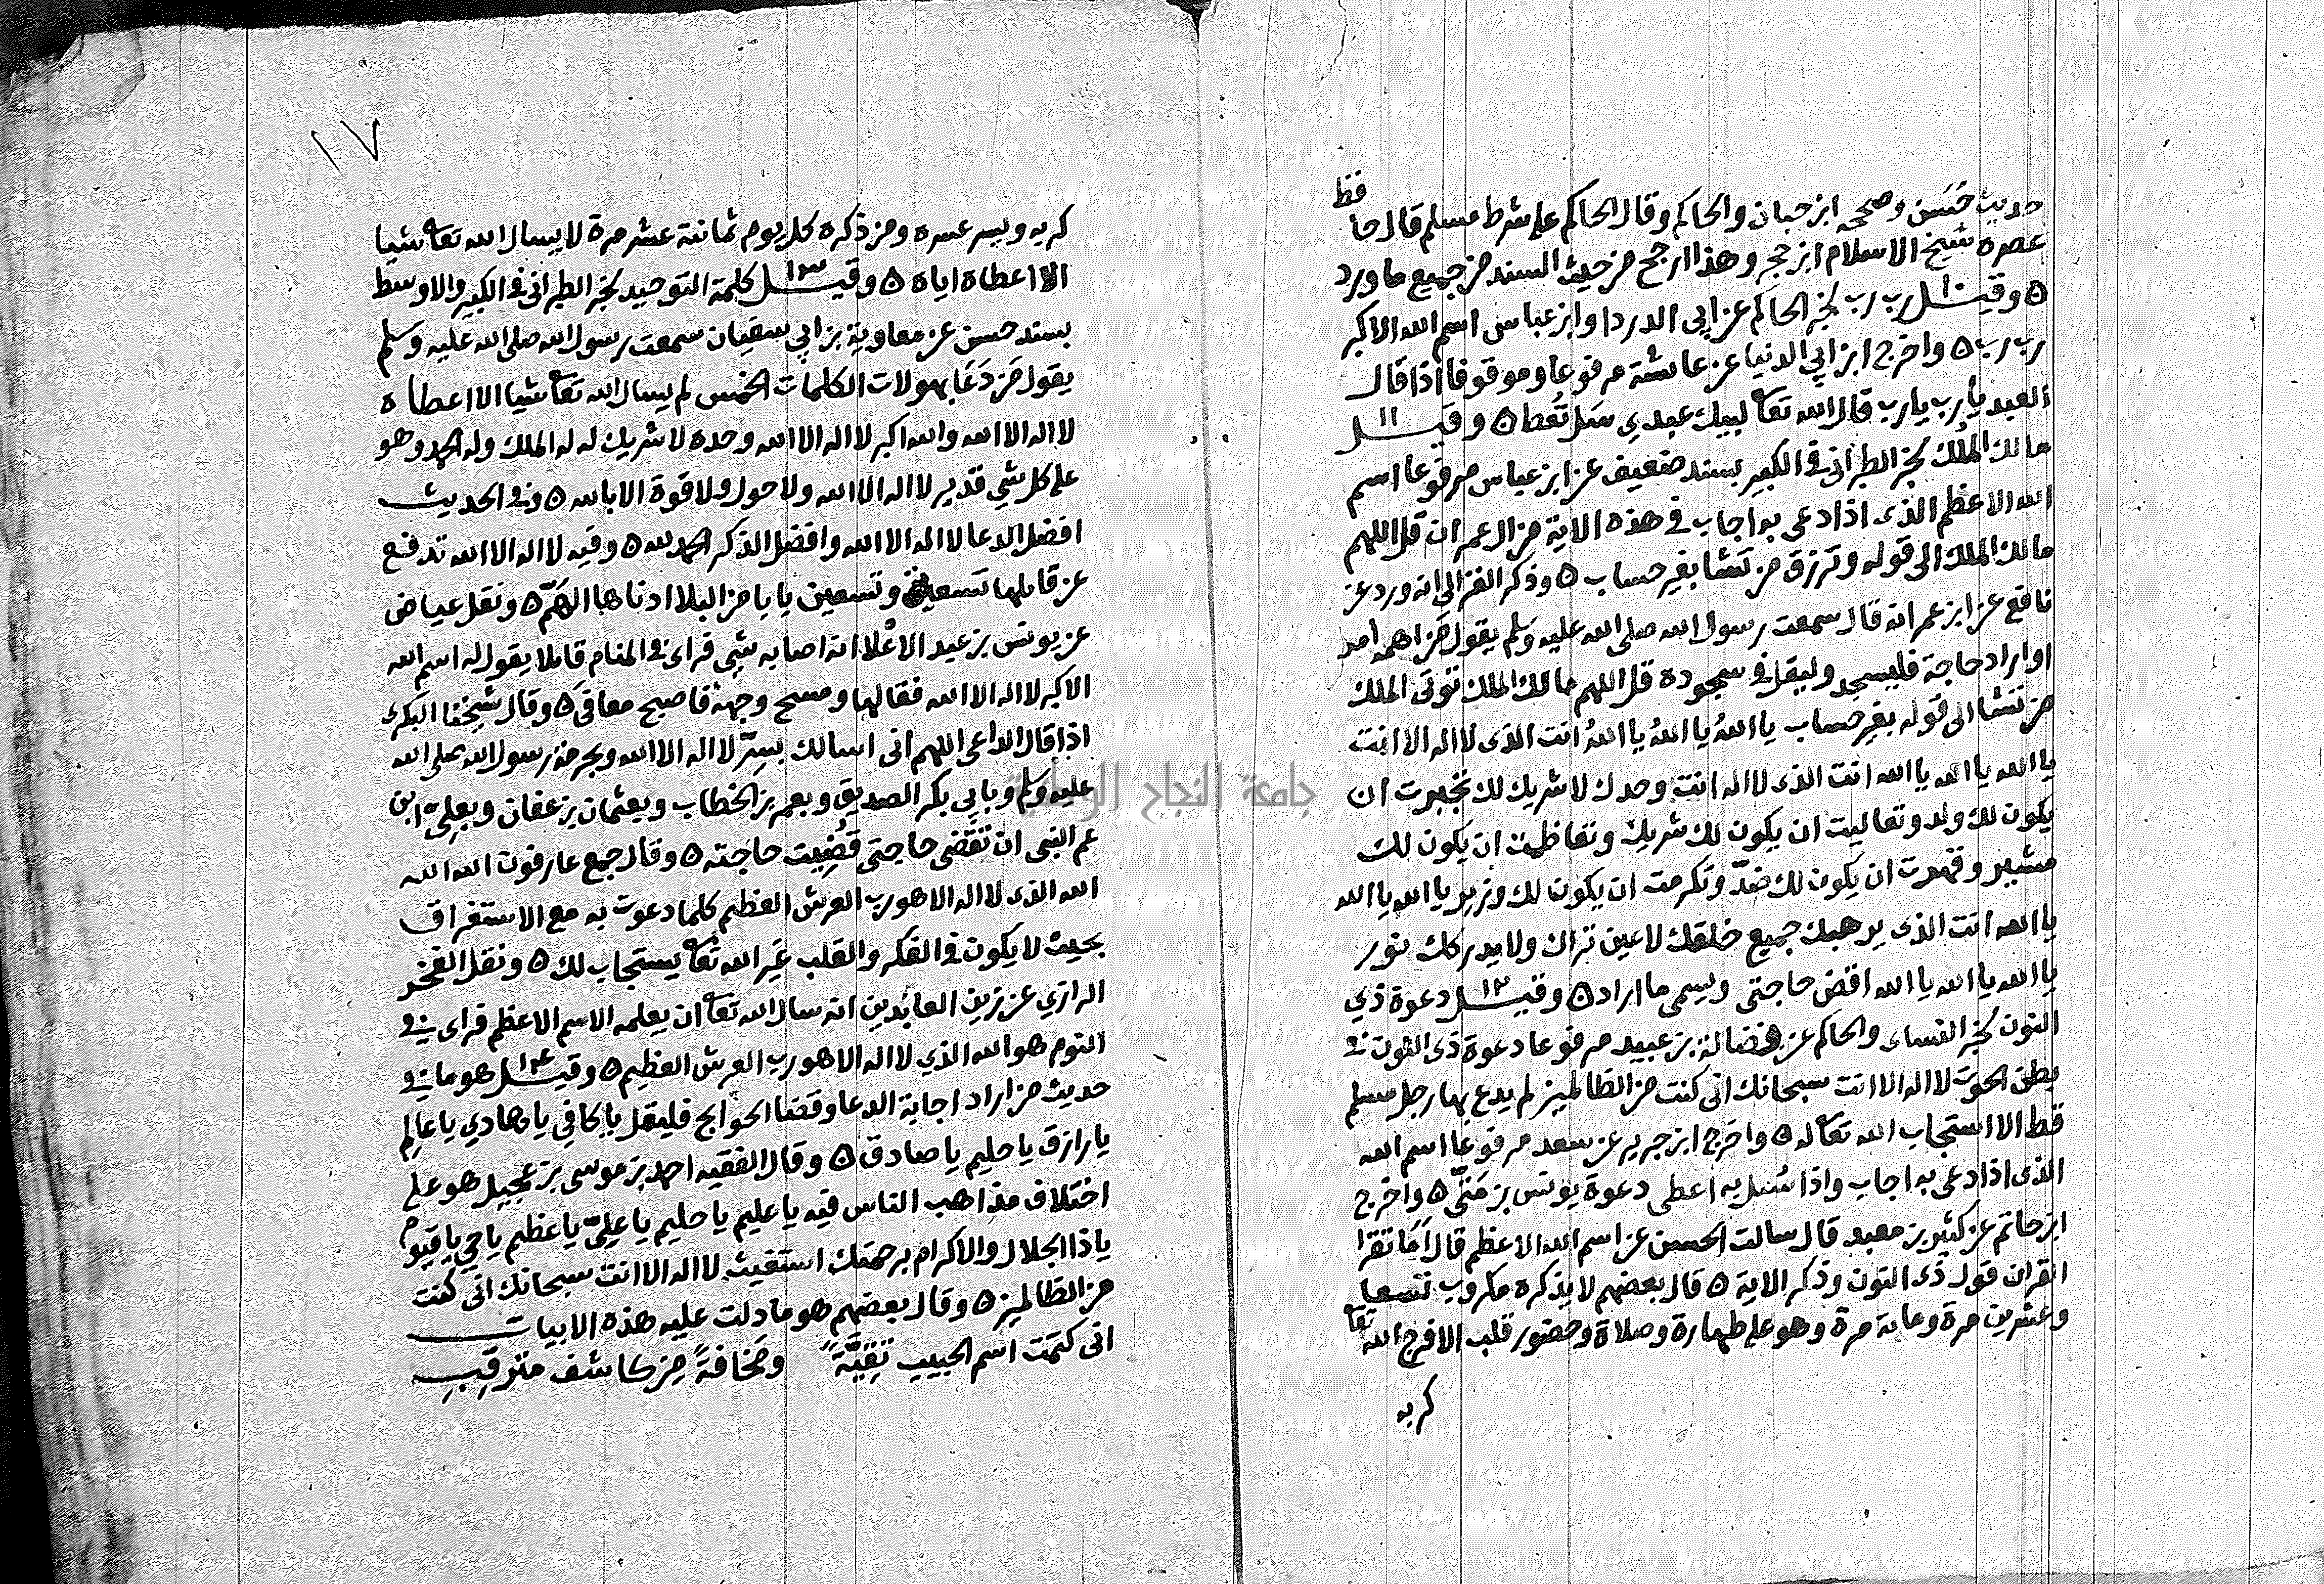 حديث حَسَن وصححه ابن حبان والحاكم وقال الحاكم على شرط مسلم قال حافظ
عصره شيخ الاسلام ابن حجر وهذا ارجح من حيث السند من جميع ما ورد
ه وقيل ١٠ رب رب لخبر الحاكم عن ابي الدردا وابن عباس اسم الله الاكبر
رب رب ه واخرج ابن ابي الدنيا عن عائشة مرفوعا وموقوفا اذا قال
العبد يا رب يا رب قال الله تعا لبيك عبدي سَل تُعطا ه وقيل ١١
مالك المُلك لخبر الطبراني في الكبير بسند ضعيف عن ابن عباس مرفوعا اسم
الله الاعظم الذى اذا دعى به اجاب في هذه الاية من ال عمران قل اللهم
مالك الملك الى قوله وترزق من تشا بغير حساب ه وذكر الغزالى انه ورد عن
نافع عن ابن عمر انه قال سمعت رسول الله صلى الله عليه وسلم يقول مَن اهمه أمر
او اراد حاجة فليسجد وليقل في سجوده قل اللهم مالك الملك توتى الملك
من تشا الى قوله بغير حساب يا اللهُ يا اللهُ يا اللهُ انت الذى لا اله الا انت
يا الله يا الله يا الله انت الذى لا اله انت وحدك لا شريك لك تجبرت ان
يكون لك ولد وتعاليت ان يكون لك شريك وتعاظمت ان يكون لك
مشير وقهرت ان يكون لك ضدّ وتكرمت ان يكون لك وزير يا الله يا الله
يا الله انت الذى يرهبك جميع خلقك لا عين تراك ولا يدركك نور
يا الله يا الله يا الله اقض حاجتى ويسمى ما اراد ه وقيل ١٢ دعوة ذي
النون لخبر النساى والحاكم عن فضالة بن عبيد مرفوعا دعوة ذى النون في
بطن الحوت لا اله الا انت سبحانك انى كنت من الظالمين لم يدع بها رجل مسلم
قط الا استجاب الله تعا له ه واخرج ابن جرير عن سعد مرفوعا اسم الله
الذى اذا دعى به اجاب واذا سُئل به اعطى دعوة يونس بن مَتىّ ه واخرج
ابن حاتم عن كثير بن معبد قال سالت الحسن عن اسم الله الاعظم قال اَمَا تقرا
القران قول ذى النون وذكر الاية ه قال بعضهم لا يذكره مكروب تسعا
وعشرين مرة وماىة مرة وهو على طهارة وصلاة وحضور قلب الا فرج الله تعا
كربه
١٧
كربه ويسر عسره ومن ذكره كل يوم ثمانىة عشر مرة لا يسال الله تعا شيا
الا اعطاه اياه ه وقيل ١٣ كلمة التوحيد لخبر الطبرانى في الكبير والاوسط
بسند حسن عن معاوية بن ابي سفيان سمعت رسول الله صلى الله عليه وسلم
يقول مَن دَعَا بهولات الكلمات الخمس لم يسال الله تعا شيا الا اعطاه
لا اله الا الله والله اكبر لا اله الا الله وحده لا شريك له له الملك وله الحمد وهو
على كل شي قدير لا اله الا الله ولا حول ولا قوة الا بالله ه وفي الحديث
افضل الدعا لا اله الا الله وافضل الذكر الحمد لله ه وفيه لا اله الا الله تدفع
عن قايلها تسعة وتسعين بابا من البلا ادناها الهَمّ ه ونقل عياض
عن يونس بن عبد الاعْلا انه اصابه شي فراى في المنام قايلا يقول له اسم الله
الاكبر لا اله الا الله فقالها ومسح وجهه فاصبح معافىً ه وقال شيخنا البكرى
اذا قال الداعى اللهم انى اسالك بسِرّ لا اله الا الله وبحرمة رسول الله صلى الله
عليه وسلم وبابي بكر الصديق وبعمر بن الخطاب وبعثمان بن عفان وبعلِىّ ابن
عم النبى ان تَقضى حاجتى قُضِيت حاجته ه وقال جمع عارفون الله الله
الله الذى لا اله الا هو رب العرش العظيم كلما دعوت به مع الاستغراق
بحيث لا يكون في الفكر والقلب غير الله تعا يستجاب لك ه ونقل الفخر
الرازي عن زين العابدين انه سال الله تعا ان يعلمه الاسم الاعظم فراى في
النوم هو الله الذي لا اله الا هو رب العرش العظيم ه وقيل ١٤ هو ما في
حديث من اراد اجابة الدعا وقضا الحوايج فليقل يا كافِي يا هادي يا عالِم
يا رازق يا حليم يا صادق ه وقال الفقيه احمد بن موسى بن عجيل هو على
اختلاف مذاهب الناس فيه يا عليم يا حليم يا علِىّ يا عظيم يا حي يا قيوم
يا ذا الجلال والاكرام برحمتك استغيث لا اله الا انت سبحانك انى كنت
من الظالمين ه وقال بعضهم هو ما دلت عليه هذه الابيات
انى كتمت اسم الحبيب تَقِيَّةً ومَخافةً مِن كاشف مترقِبِ
جامعة النجاح الوطنية